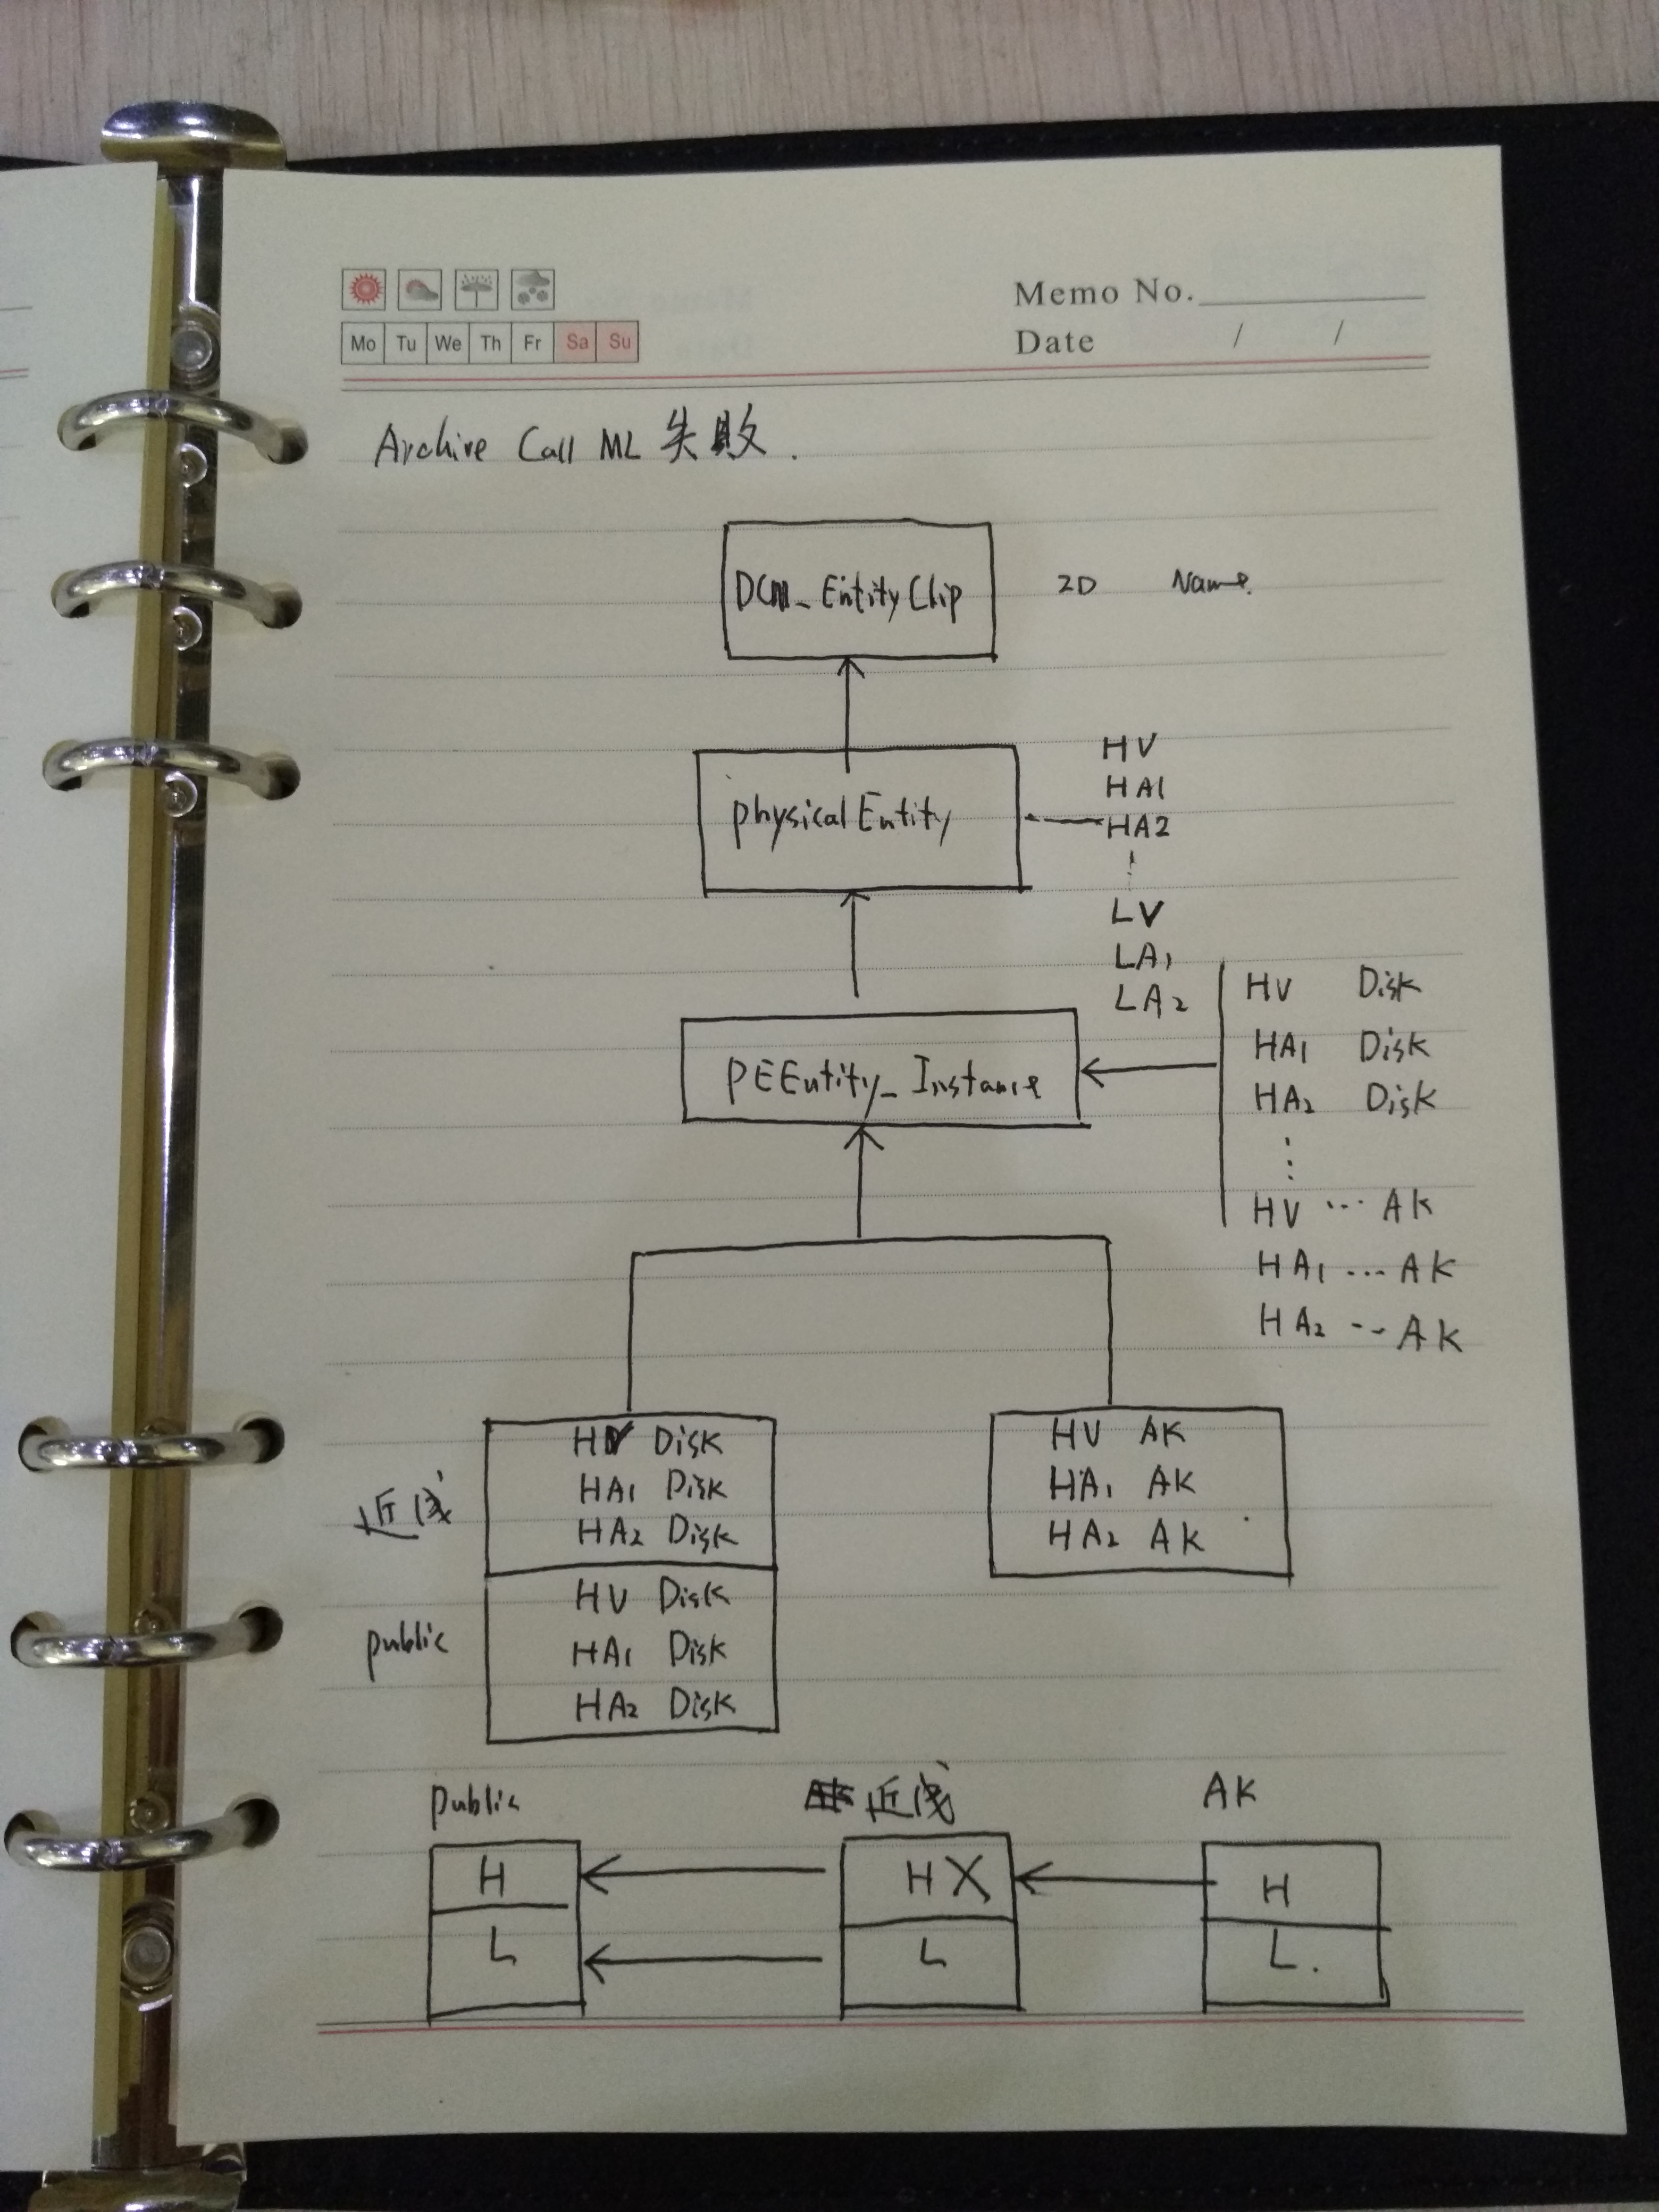 Memo No.
Mo Tu We Th Fr Sa Su
Date / /
Archive Call ML 失败.
DCM_EntityClip ID Name
physicalEntity
HV
HA1
HA2
LV
LA1
LA2
PEEntity_Instance
HV Disk
HA1 Disk
HA2 Disk
HV ... AK
HA1 ... AK
HA2 -- AK
近线
HV Disk
HA1 Disk
HA2 Disk
public
HV Disk
HA1 Disk
HA2 Disk
HV AK
HA1 AK
HA2 AK
public 近线 AK
H HX H
L L L.